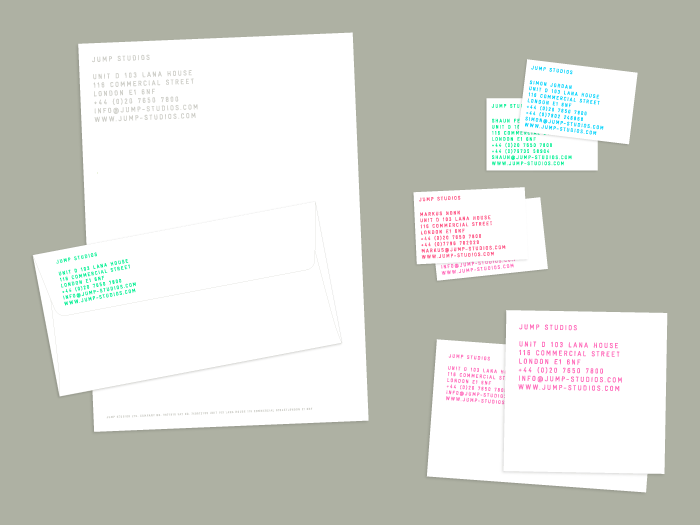 JUMP STUDIOS
UNIT D 103 LANA HOUSE
116 COMMERCIAL STREET
LONDON E1 6NF
+44 (0)20 7650 7800
INFO@JUMP-STUDIOS.COM
WWW.JUMP-STUDIOS.COM
JUMP STUDIOS
UNIT D 103 LANA HOUSE
116 COMMERCIAL STREET
LONDON E1 6NF
+44 (0)20 7650 7800
INFO@JUMP-STUDIOS.COM
WWW.JUMP-STUDIOS.COM
JUMP STUDIOS
SIMON JORDAN
UNIT D 103 LANA HOUSE
116 COMMERCIAL STREET
LONDON E1 6NF
+44 (0)20 7650 7800
SIMON@JUMP-STUDIOS.COM
WWW.JUMP-STUDIOS.COM
JUMP
SHAUN
UNIT D
116 COMMERCIAL
LONDON E1 6NF
+44 (0)20 7650 7800
SHAUN@JUMP-STUDIOS.COM
WWW.JUMP-STUDIOS.COM
JUMP STUDIOS
MARKUS NONN
UNIT D 103 LANA HOUSE
116 COMMERCIAL STREET
LONDON E1 6NF
+44 (0)20 7650 7800
MARKUS@JUMP-STUDIOS.COM
WWW.JUMP-STUDIOS.COM
INFO@JUMP-STUDIOS.COM
WWW.JUMP-STUDIOS.COM
JUMP STUDIOS
UNIT D 103 LANA
116 COMMERCIAL
LONDON E1 6NF
+44 (0)20 7650
INFO@JUMP-STUDIOS
WWW.JUMP-STUDIOS
JUMP STUDIOS
UNIT D 103 LANA HOUSE
116 COMMERCIAL STREET
LONDON E1 6NF
+44 (0)20 7650 7800
INFO@JUMP-STUDIOS.COM
WWW.JUMP-STUDIOS.COM